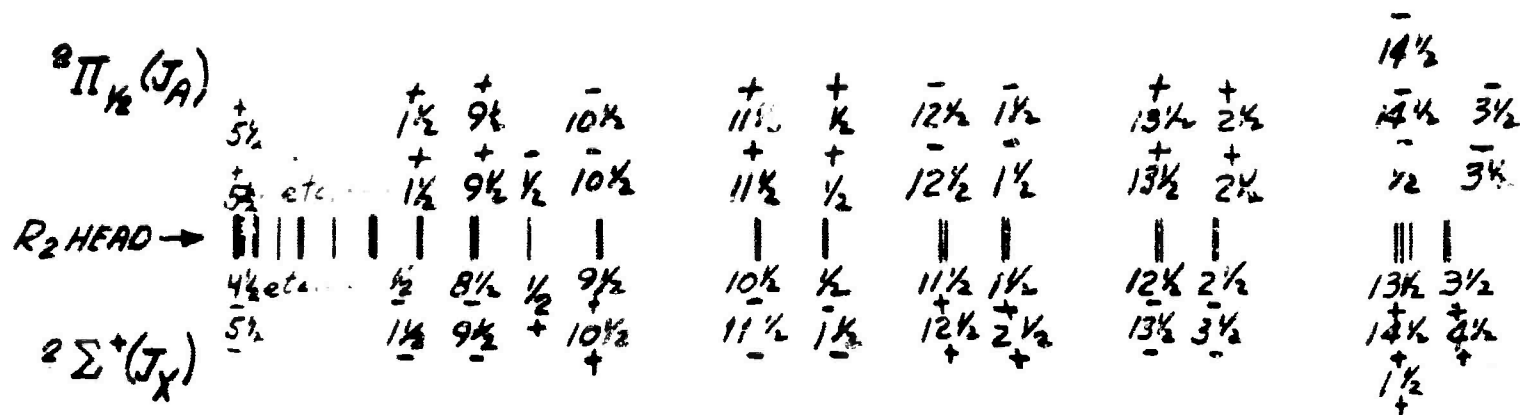 −
14½
²Π½(J_A) + + + − + + − − + + − −
5½ 1½ 9½ 10½ 11½ ½ 12½ 1½ 13½ 2½ 14½ 3½
+ + + − − + + − − + + − −
5½ etc. 1½ 9½ ½ 10½ 11½ ½ 12½ 1½ 13½ 2½ ½ 3½
R₂ HEAD →
4½ etc... ½ 8½ ½ 9½ 10½ ½ 11½ 1½ 12½ 2½ 13½ 3½
− − − + + − − + + − − + +
5½ 1½ 9½ 10½ 11½ 1½ 12½ 2½ 13½ 3½ 14½ 4½
²Σ⁺(J_X) − − − + − − + + − − + +
1½
+